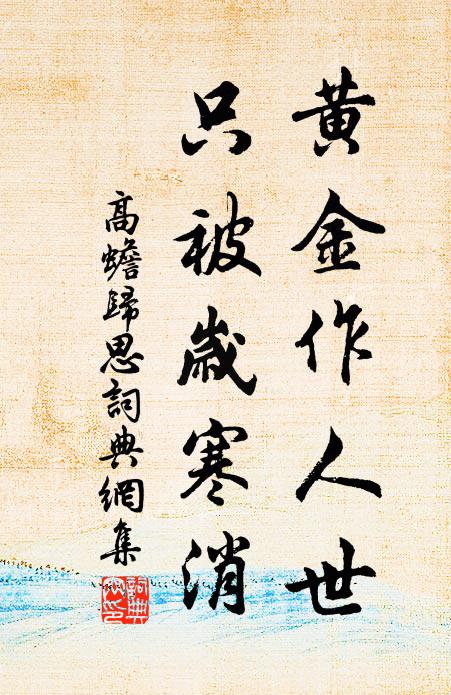 黄金作人世
只被歲寒消
高蟾歸思詞典網集